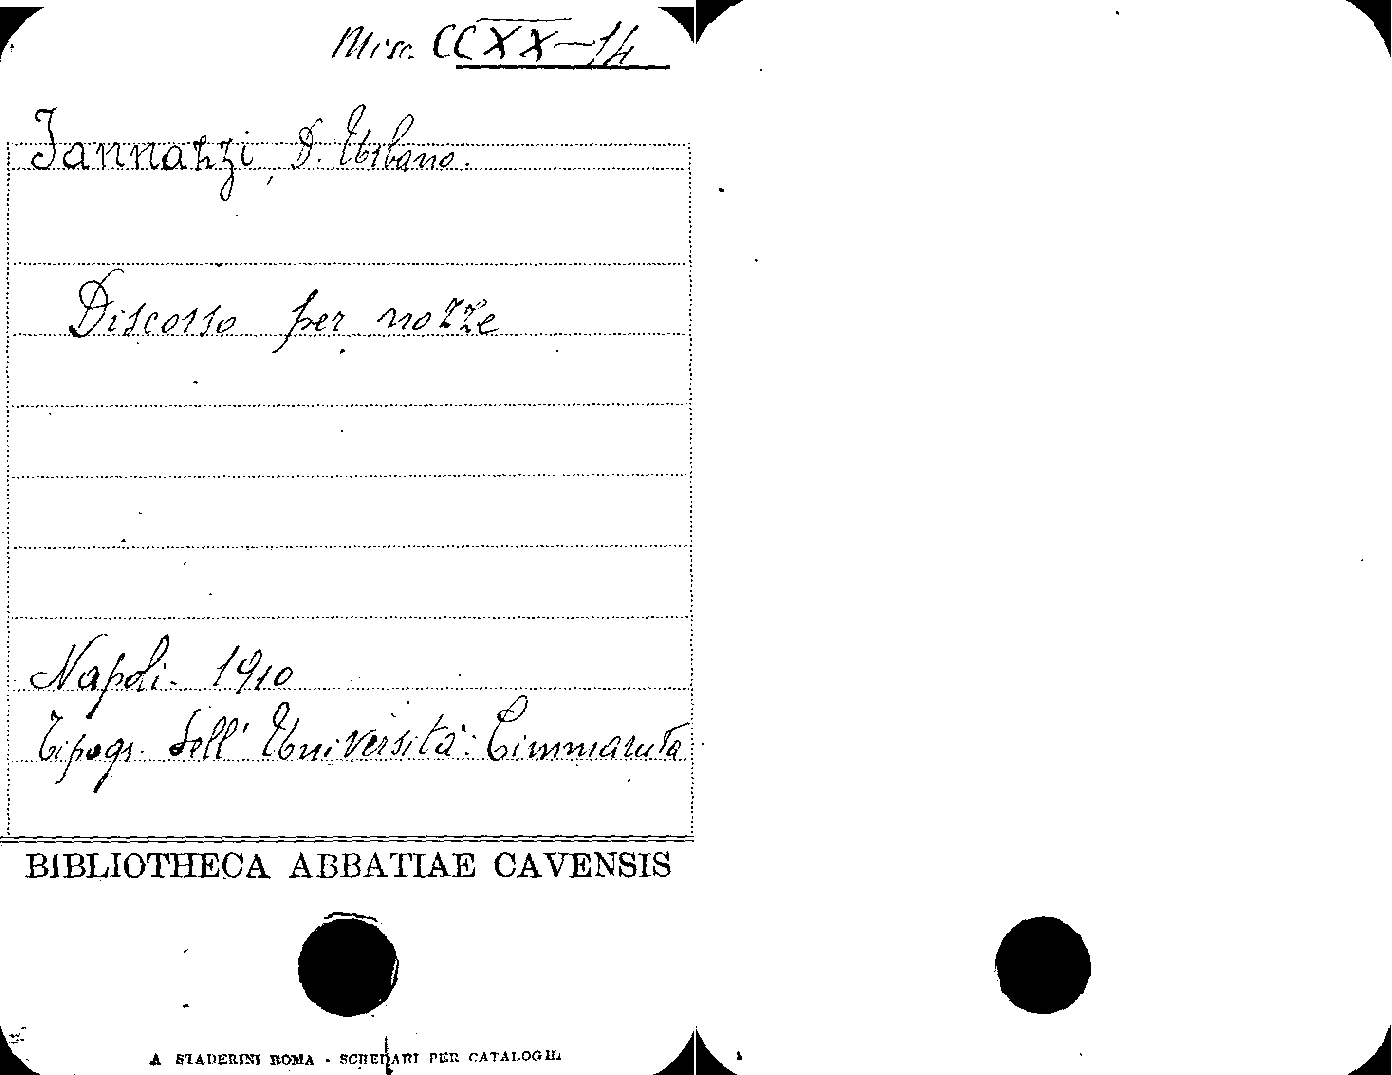 Misc. CCXX-14
Iannazzi, D. Urbano.
Discorso per nozze
Napoli- 1910
Tipogr. dell' Università: Cimmaruta
BIBLIOTHECA ABBATIAE CAVENSIS
A STADERINI ROMA - SCHEDARI PER CATALOGHI